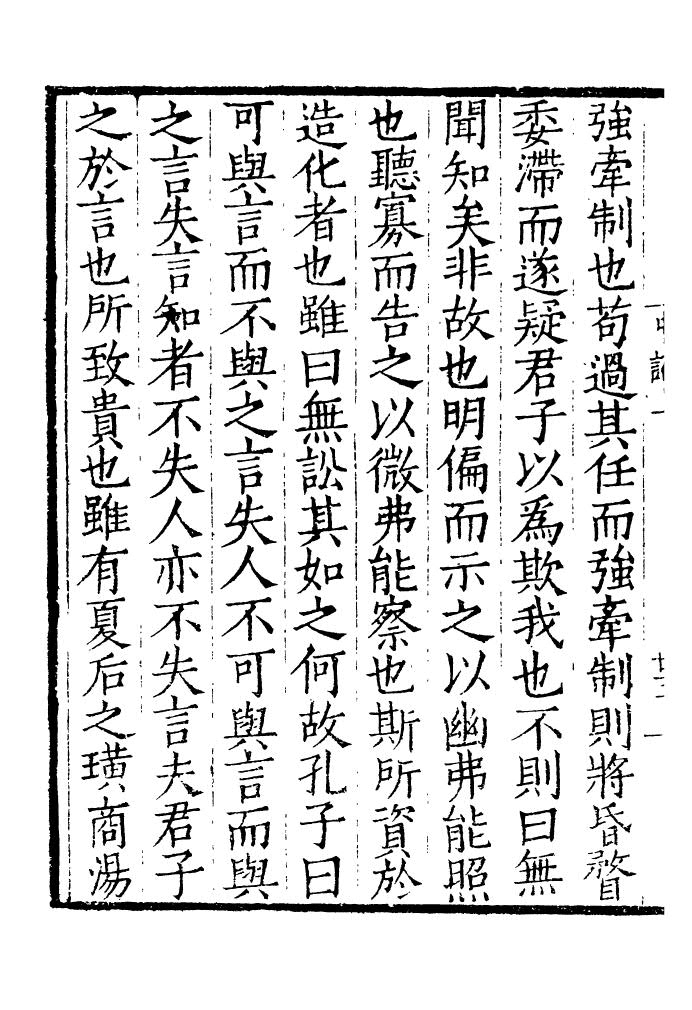 強牽制也苟過其任而強牽制則將昏瞀
委滯而遂疑君子以爲欺我也不則曰無
聞知矣非故也明偏而示之以幽弗能照
也聽寡而告之以微弗能察也斯所資於
造化者也雖曰無訟其如之何故孔子曰
可與言而不與之言失人不可與言而與
之言失言知者不失人亦不失言夫君子
之於言也所致貴也雖有夏后之璜商湯